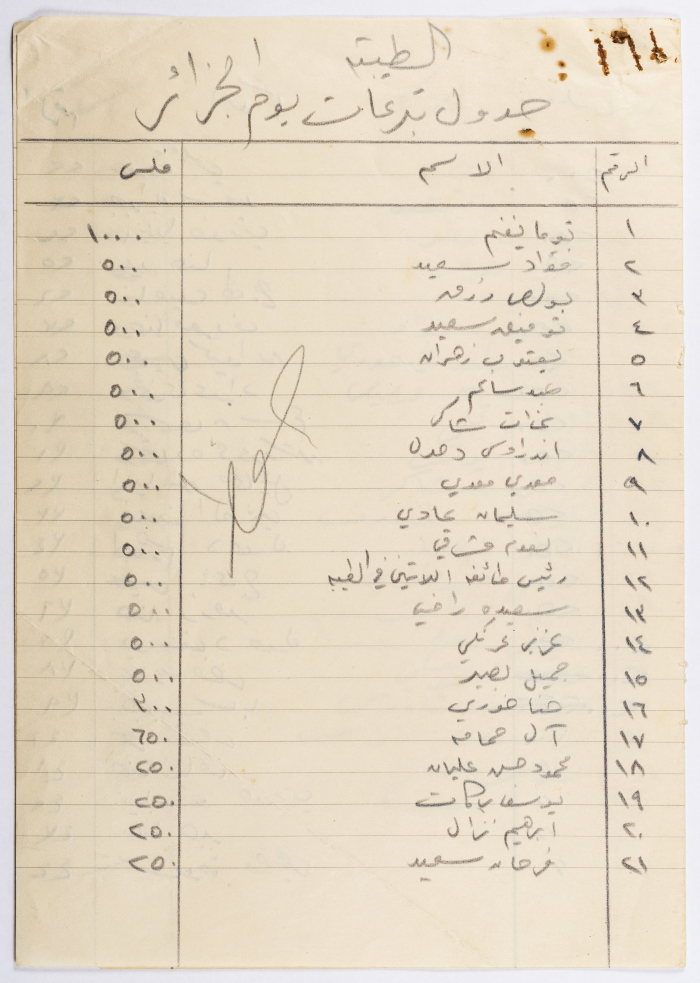 ١٦١
الطيبة
جدول تبرعات يوم الجزائر
الرقم الاسم فلس
١ توما نغنم ١٠٠٠
٢ فؤاد سعيد ٥٠٠
٣ بولص رزق ٥٠٠
٤ توفيق سعيد ٥٠٠
٥ يعقوب زهران ٥٠٠
٦ عيد سالم ٥٠٠
٧ نجات شاكر ٥٠٠
٨ اندراوس دحدل ٥٠٠
٩ معدي معدي ٥٠٠
١٠ سليمان عبادي ٥٠٠
١١ ٥٠٠
١٢ رئيس طائفة اللاتين في الطيبة ٥٠٠
١٣ سعيد راضي ٥٠٠
١٤ عزيز ٥٠٠
١٥ جميل بصير ٥٠٠
١٦ حنا خوري ٣٠٠
١٧ آل حمامه ٦٥٠
١٨ محمود حسن عليان ٢٥٠
١٩ يوسف بركات ٢٥٠
٢٠ ابرهيم نزال ٢٥٠
٢١ فرحان سعيد ٢٥٠